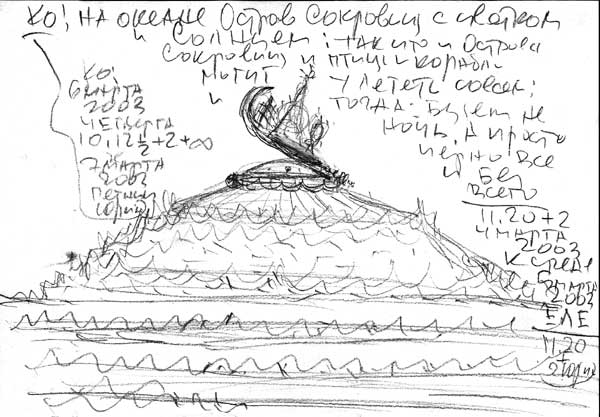 КО! НА ОКЕАНЕ ОСТРОВ СОКРОВИЩ С
И СОЛНЦЕМ: ТАК ЧТО И ОСТРОВ
СОКРОВИЩ И ПТИЦЫ КОРАБЛИ
МОГУТ УЛЕТЕТЬ СОВСЕМ;
И ТОГДА БУДЕТ НЕ
НОЧЬ, А ПРОСТО
ЧЕРНО ВСЕ
И БЕЗ
ВСЕГО
КО!
6 МАРТА
2003
ЧЕТВЕРГА
10,12 1/2+2+∞
7 МАРТА
2003
ПЯТНИЦ
11.20+2
4 МАРТА
2003
К СРЕДЕ
5 МАРТА
2003
ЕЛЕ
11.20